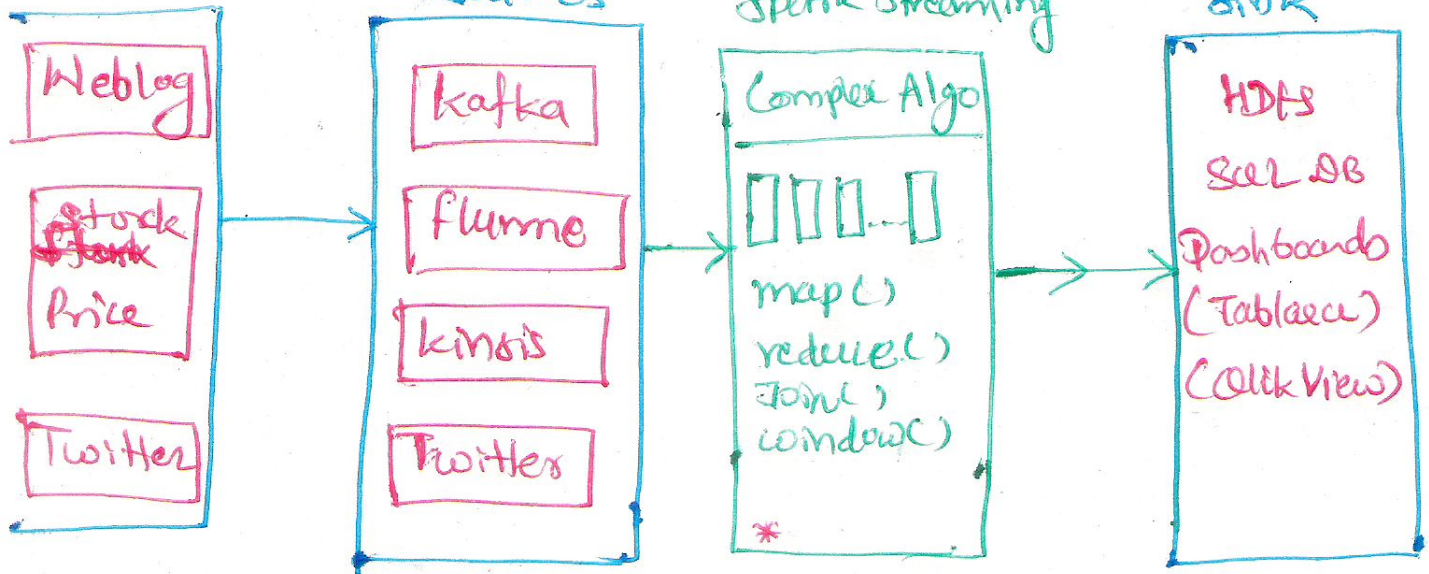 Spark Streaming
Sink
Weblog
Stock
Price
Twitter
Kafka
flume
kinsis
Twitter
Complex Algo
....
map()
reduce()
Join()
window()
*
HDFS
SQL DB
Dashboards
(Tablaeu)
(Qlik View)